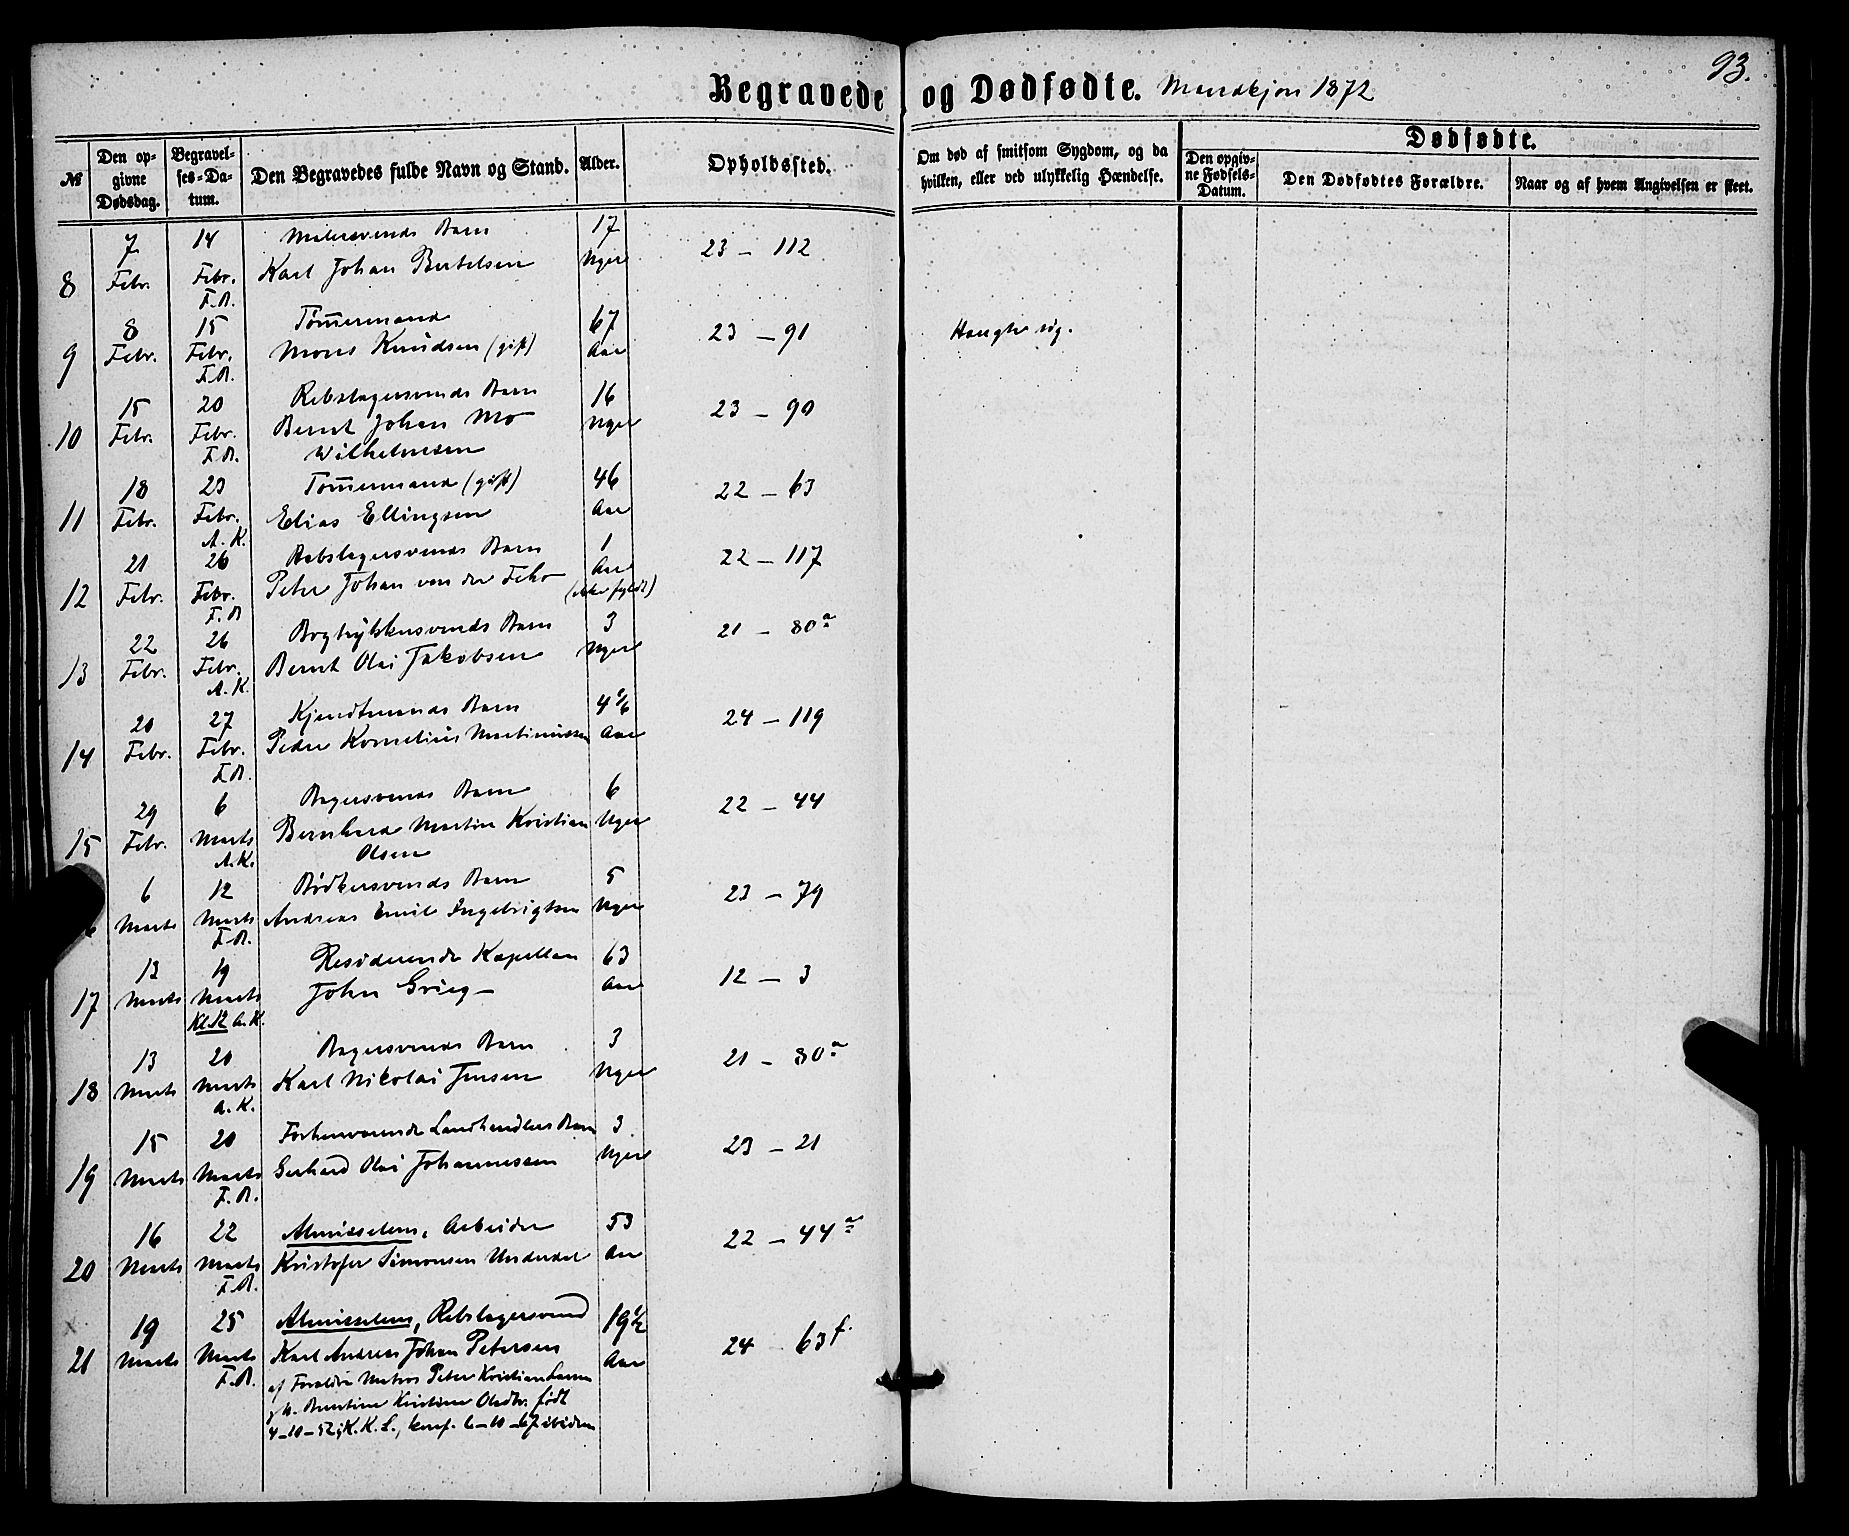 93.
Begravede og Dødfødte. Mandkjøn 1872
№
Den opgivne Dødsdag.
Begravelses-Datum.
Den Begravedes fulde Navn og Stand.
Alder.
Opholdssted.
Om død af smitsom Sygdom, og da hvilken, eller ved ulykkelig Hændelse.
Dødfødte.
Den opgivne Fødsels-Datum.
Den Dødfødtes Forældre.
Naar og af hvem Angivelsen er skeet.
7 14 Malersvends Barn 17
8 Febr. Febr. Karl Johan Bertelsen Uger 23 – 112
F.A.
8 15 Tømermand 67
9 Febr. Febr. Mons Knudsen (gift) Aar 23 – 91 Hængte sig.
F.A.
15 20 Rebslagersvends Barn 16
10 Febr. Febr. Bernt Johan Mo Uger 23 – 90
F.A. Wilhelmsen
18 23 Tømermand (gift) 46
11 Febr. Febr. Elias Ellingsen Aar 22 – 63
A.K.
21 26 Rebslagersvends Barn 1
12 Febr. Febr. Peter Johan von der Fehr Aar 22 – 117
F.A. (ikke fyldt)
22 26 Barn 3
13 Febr. Febr. Bernt Olai Jakobsen Uger 21 – 80a
A.K.
20 27 Kjendtmands Barn 4 1/6
14 Febr. Febr. Peder Kornelius Martinussen Aar 24 – 119
F.A.
29 6 Bagersvends Barn 6
15 Febr. Marts Bernhard Martin Kristian Uger 22 – 44
A.K. Olsen
6 12 Bødkersvends Barn 5
6 Marts Marts Andreas Emil Ingebrigtsen Uger 23 – 79
F.A.
13 19 Residerende Kapellan 63
17 Marts Marts John Grieg – Aar 12 – 3
Kl. 12 A.K.
13 20 Bagersvends Barn 3
18 Marts Marts Karl Nikolai Jensen Uger 21 – 80a
A.K.
15 20 Forhenværende Landhandlers Barn 3
19 Marts Marts Gerhard Olai Johannessen Uger 23 – 21
F.A.
16 22 Almisselem, Arbeider 53
20 Marts Marts Kristofer Simonsen Underdal Aar 22 – 44a
F.A.
19 25 Almisselem, Rebslagersvend 19 1/2
21 Marts Marts Karl Andreas Johan Petersen Aar 24 63f.
F.A. af Forældre Matros Peter Kristian Larsen
Kristine Olsdtr. født
4–10–52 i K.K. S., konf. 6–10–67 ibidem